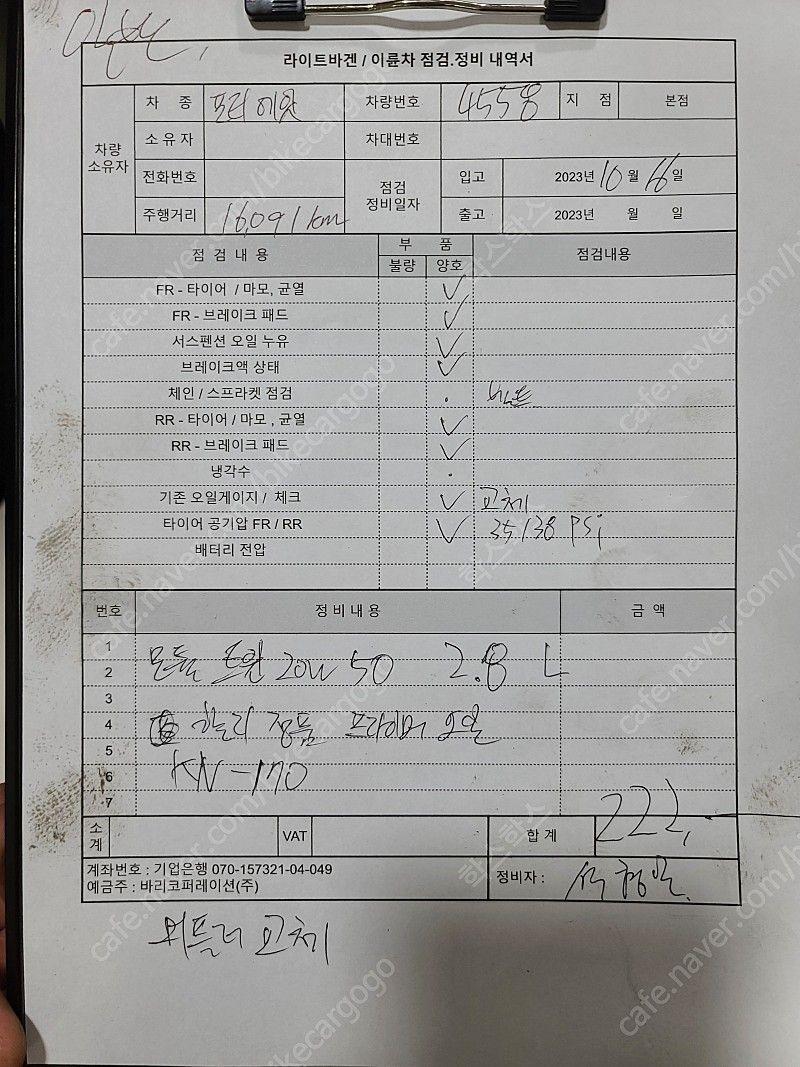 라이트바겐 / 이륜차 점검.정비 내역서
차량 소유자
차 종 프리에잇 차량번호 4558 지 점 본점
소유자 차대번호
전화번호 점검 정비일자 입고 2023년 10월 16일
주행거리 16,091km 출고 2023년 월 일
점 검 내 용 부 품 점검내용
불량 양호
FR - 타이어 / 마모, 균열 ✓
FR - 브레이크 패드 ✓
서스펜션 오일 누유 ✓
브레이크액 상태 ✓
체인 / 스프라켓 점검 . 벨트
RR - 타이어 / 마모 , 균열 ✓
RR - 브레이크 패드 ✓
냉각수 .
기존 오일게이지 / 체크 ✓ 교체
타이어 공기압 FR / RR ✓ 35/38 PSi
배터리 전압
번호 정 비 내 용 금 액
1
2 모튤 트윈 20W 50 2.8 L
3
4 할리 정품 프라이머 오일
5
6 KN-170
7
소계 VAT 합 계 222,-
계좌번호 : 기업은행 070-157321-04-049
예금주 : 바리코퍼레이션(주)
정비자 :
머플러 교체
cafe.naver.com/bikecargogo
학스학스